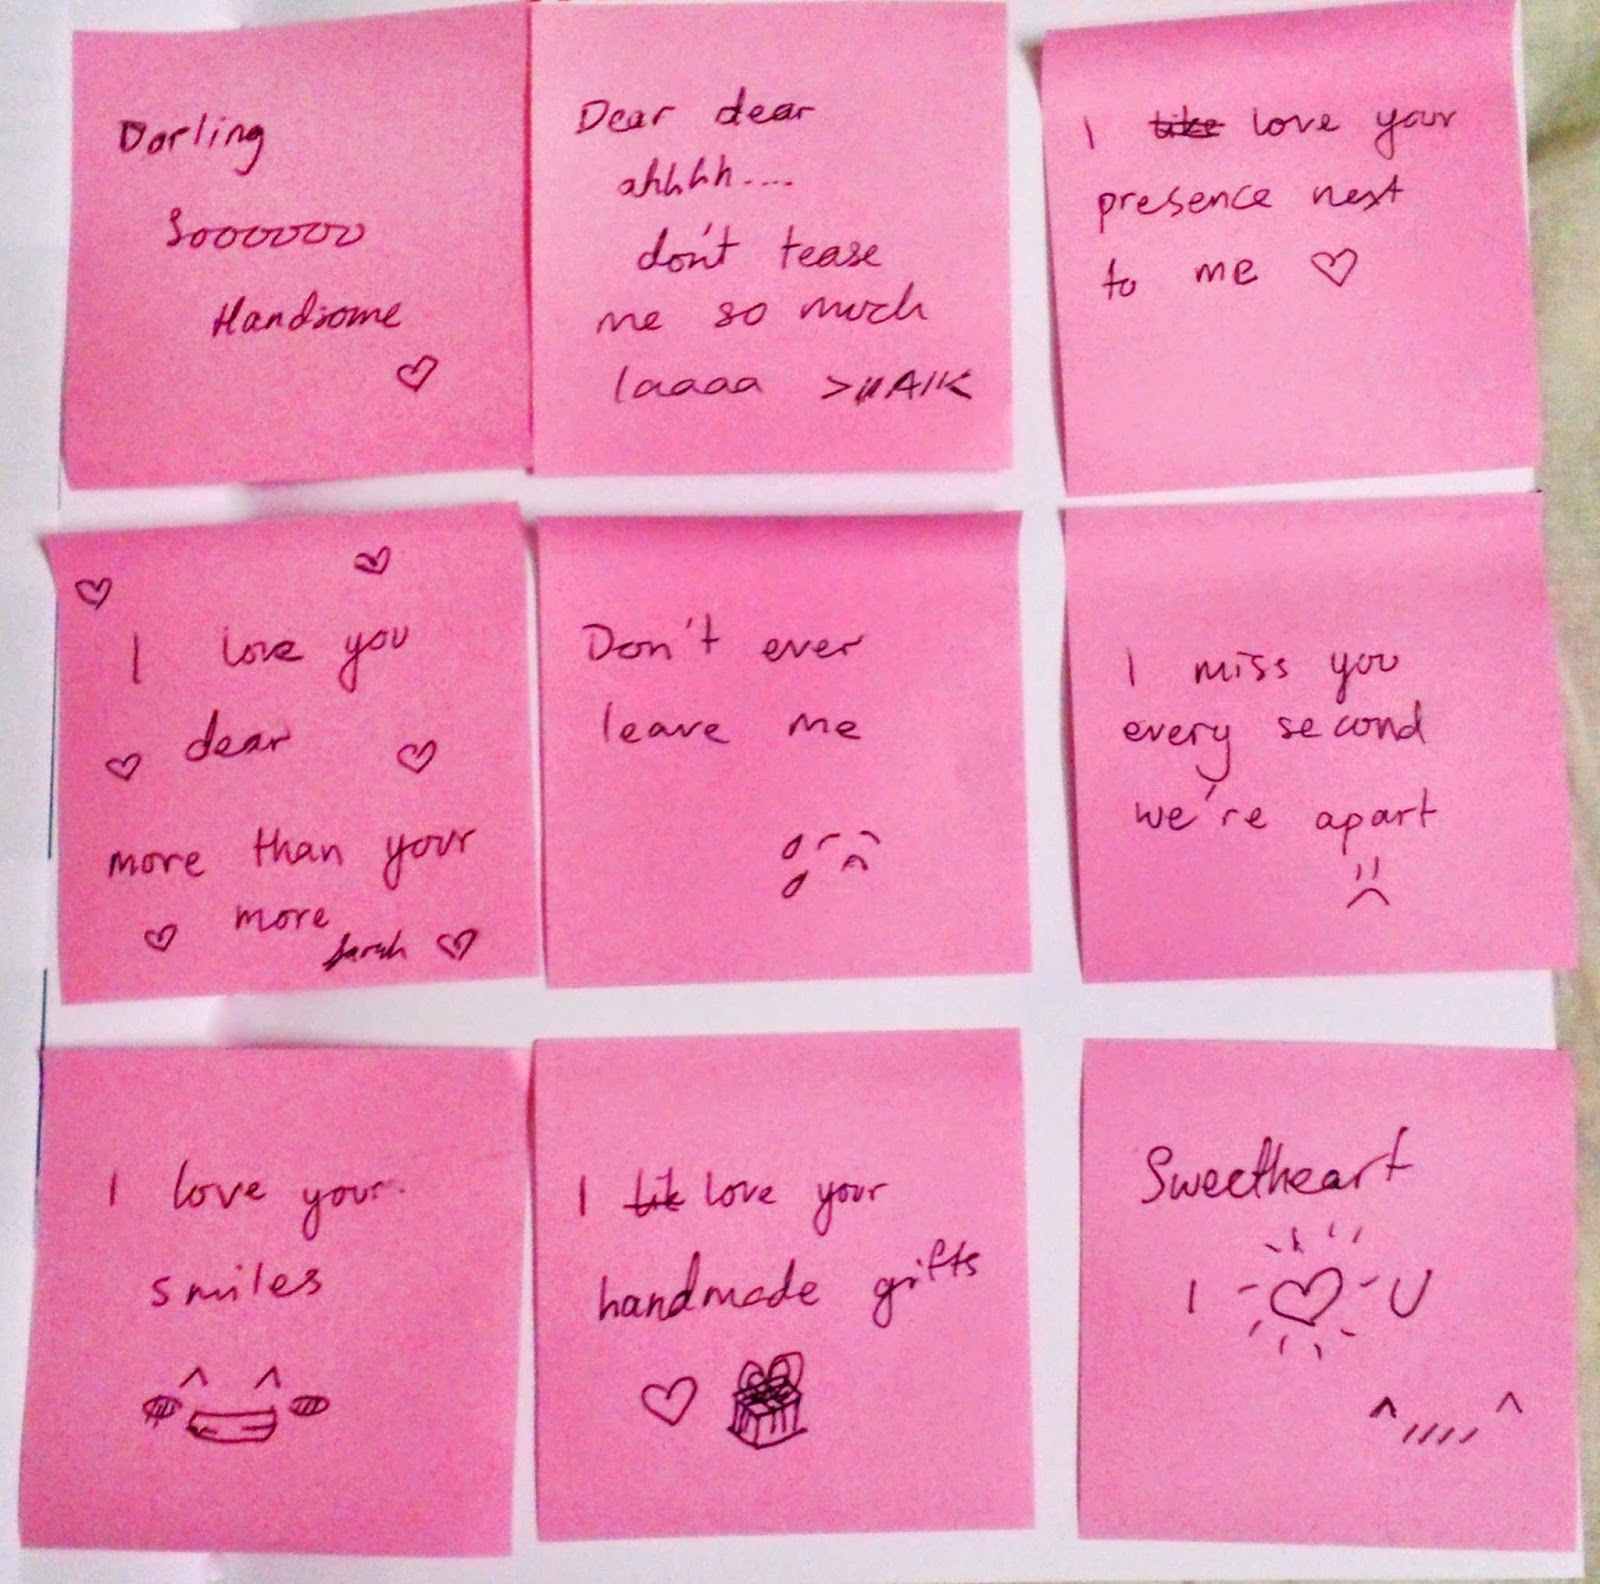 Darling
Sooooooo
Handsome
Dear dear
ahhhh....
don't tease
me so much
laaaa >//A//<
I like love your
presence next
to me ♡
I love you
dear
more than your
more
Sarah
Don't ever
leave me
I miss you
every second
we're apart
I love your
smiles
I lik love your
handmade gifts
Sweetheart
I ♡ U
^,,,,^